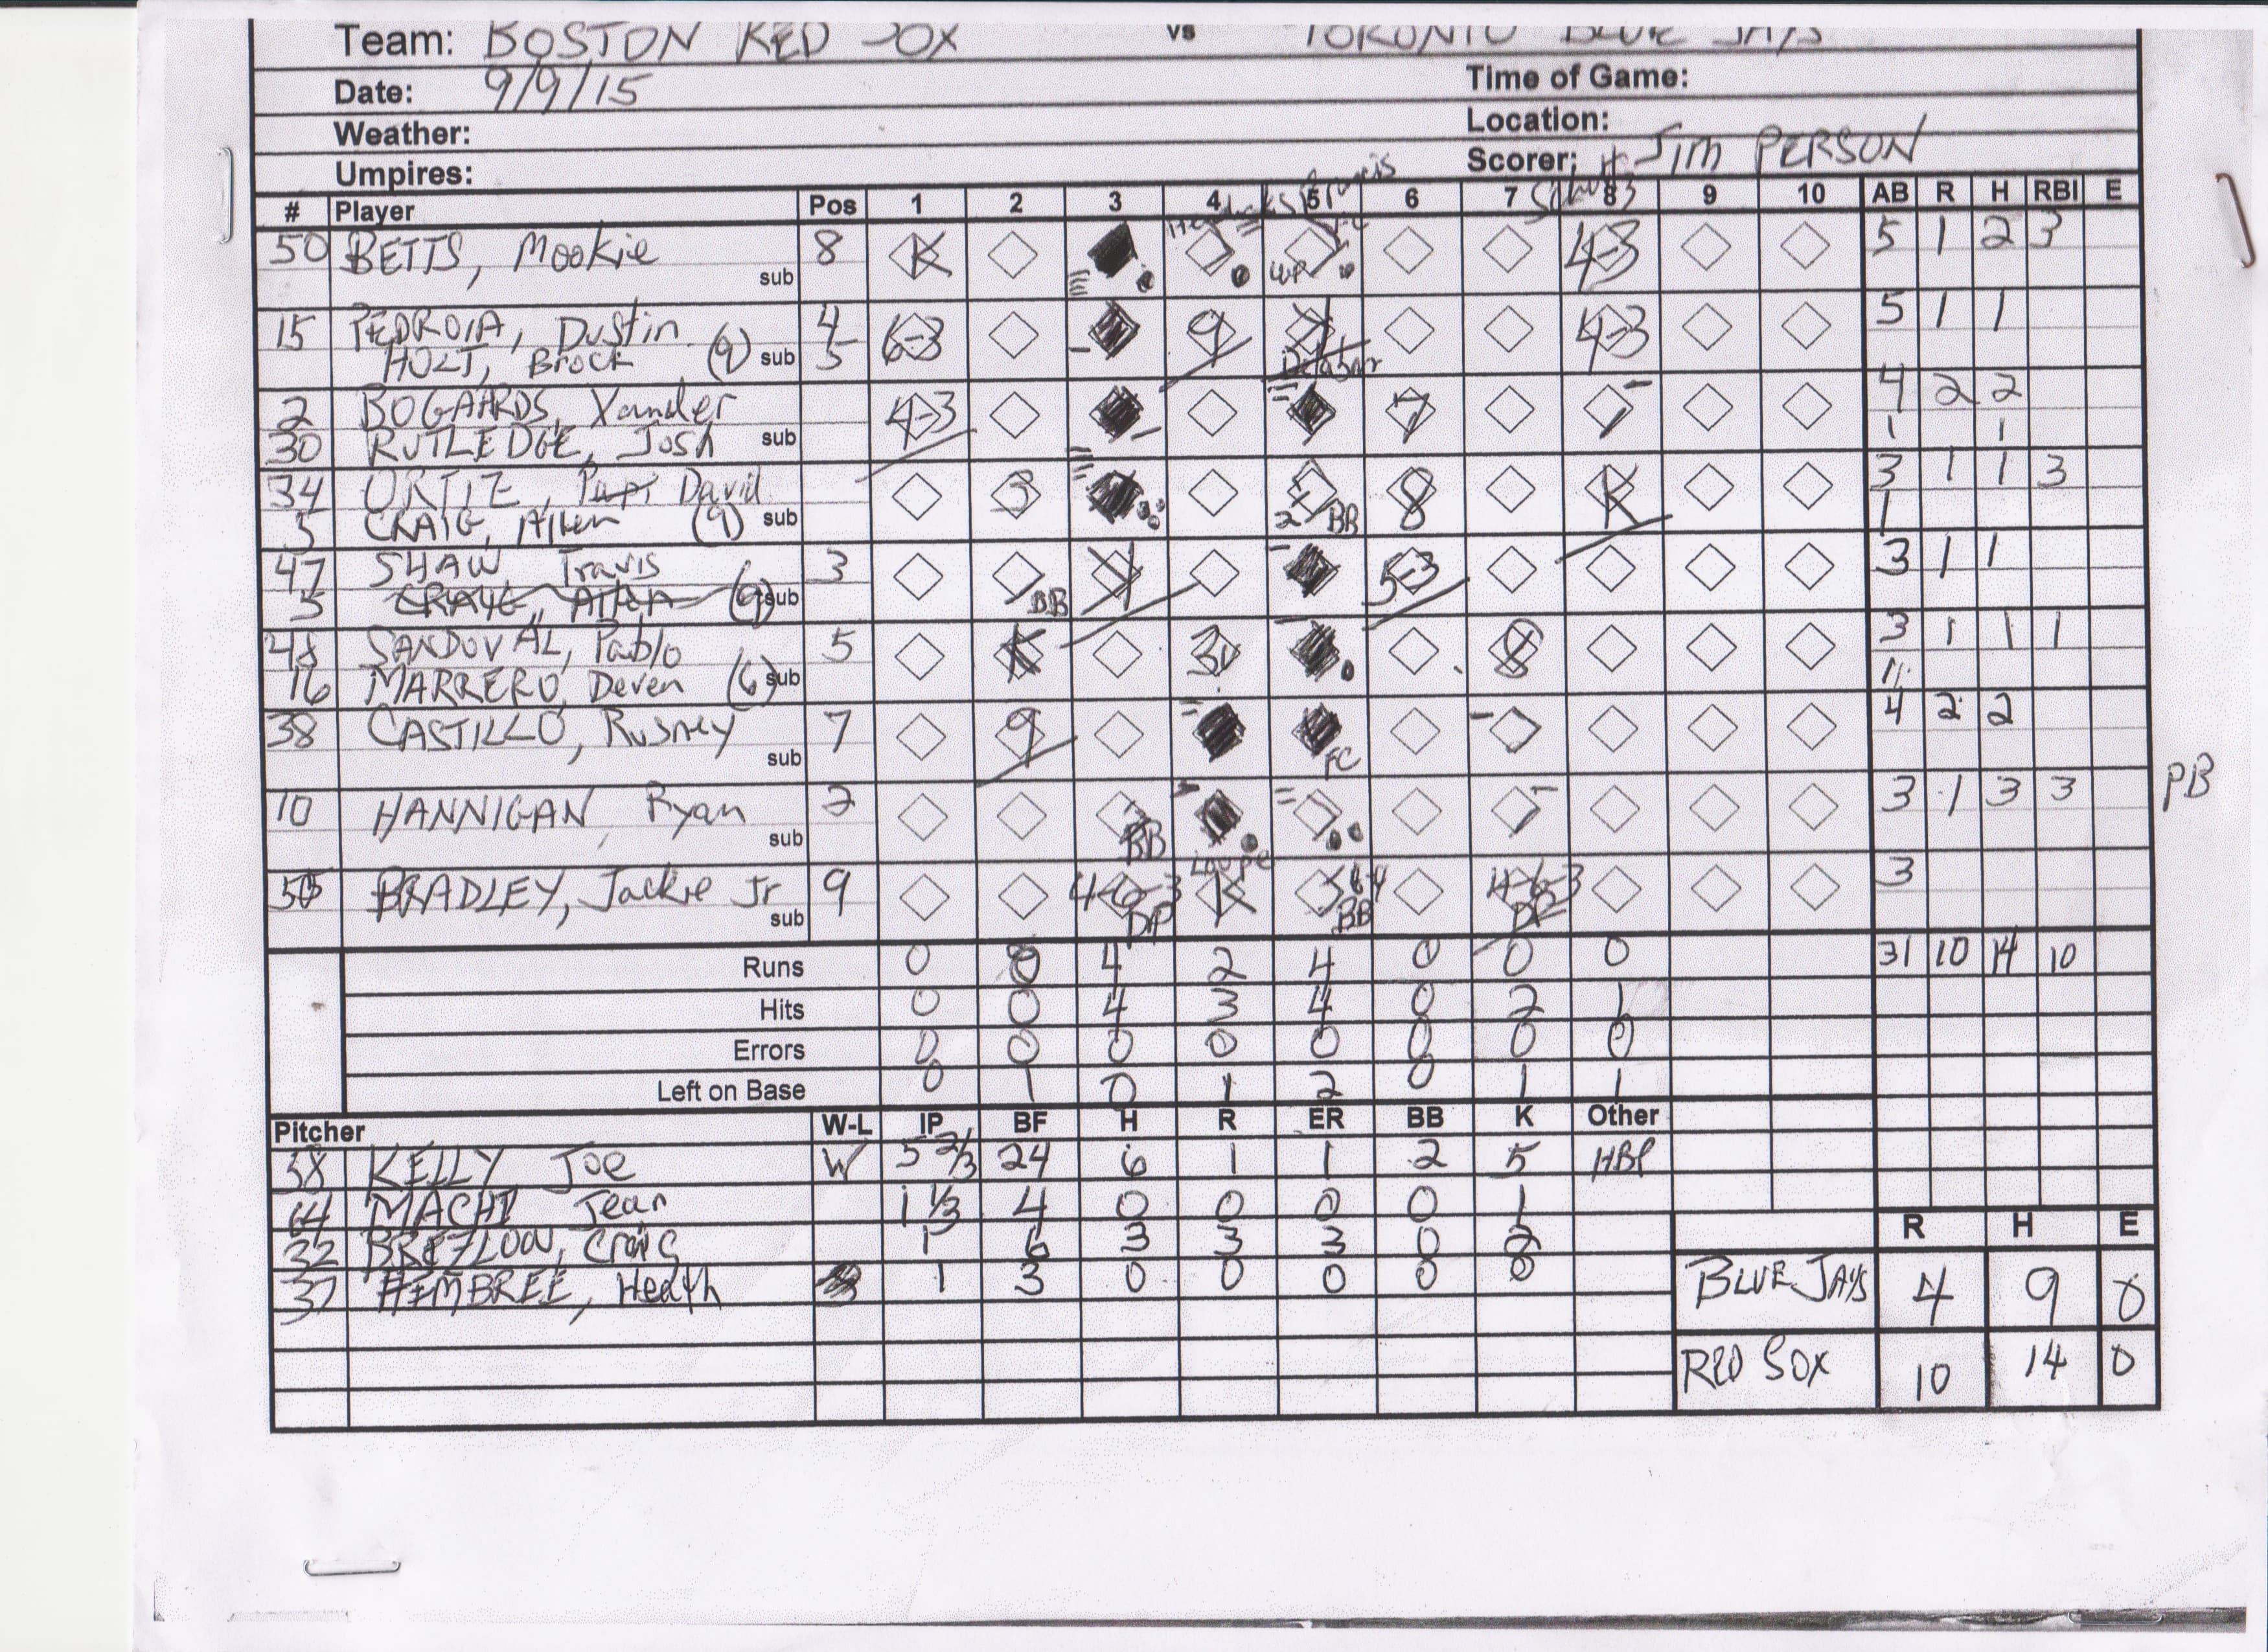 Team: BOSTON RED SOX vs TORONTO BLUE JAYS
Date: 9/9/15 Time of Game:
Weather: Location:
Umpires: Scorer: JIM PERSON
# Player Pos 1 2 3 4 5 6 7 8 9 10 AB R H RBI E
50 BETTS, Mookie sub 8 K WP 4-3 5 1 2 3
15 PEDROIA, Dustin 4 6-3 9 4-3 5 1 1
HOLT, Brock (9) sub 5
2 BOGAARDS, Xander 4-3 7 4 2 2
30 RUTLEDGE, Josh sub 1 1
34 ORTIZ, David 3 BB 8 K 3 1 1 3
5 CRAIG, Allen (9) sub 1
47 SHAW Travis 3 BB 5-3 3 1 1
5 CRAIG, Allen (6) sub
48 SANDOVAL, Pablo 5 K 3U 8 3 1 1 1
16 MARRERO, Deven (6) sub 1
38 CASTILLO, Rusney sub 7 9 FC 4 2 2
10 HANNIGAN, Ryan sub 2 BB 3 1 3 3 PB
BRADLEY, Jackie Jr sub 9 4-6-3 DP K BB 4-6-3 DP 3
Runs 0 0 4 2 4 0 0 0 31 10 14 10
Hits 0 0 4 3 4 0 2 1
Errors 0 0 0 0 0 0 0 0
Left on Base 0 1 0 1 2 0 1 1
Pitcher W-L IP BF H R ER BB K Other
38 KELLY Joe W 5 2/3 24 6 1 1 2 5 HBP
64 MACHI Jean 1 1/3 4 0 0 0 0 1
32 BREZLOW, Craig 1 6 3 3 3 0 2
37 HEMBREE, Heath 1 3 0 0 0 0 0
R H E
BLUE JAYS 4 9 0
RED SOX 10 14 0